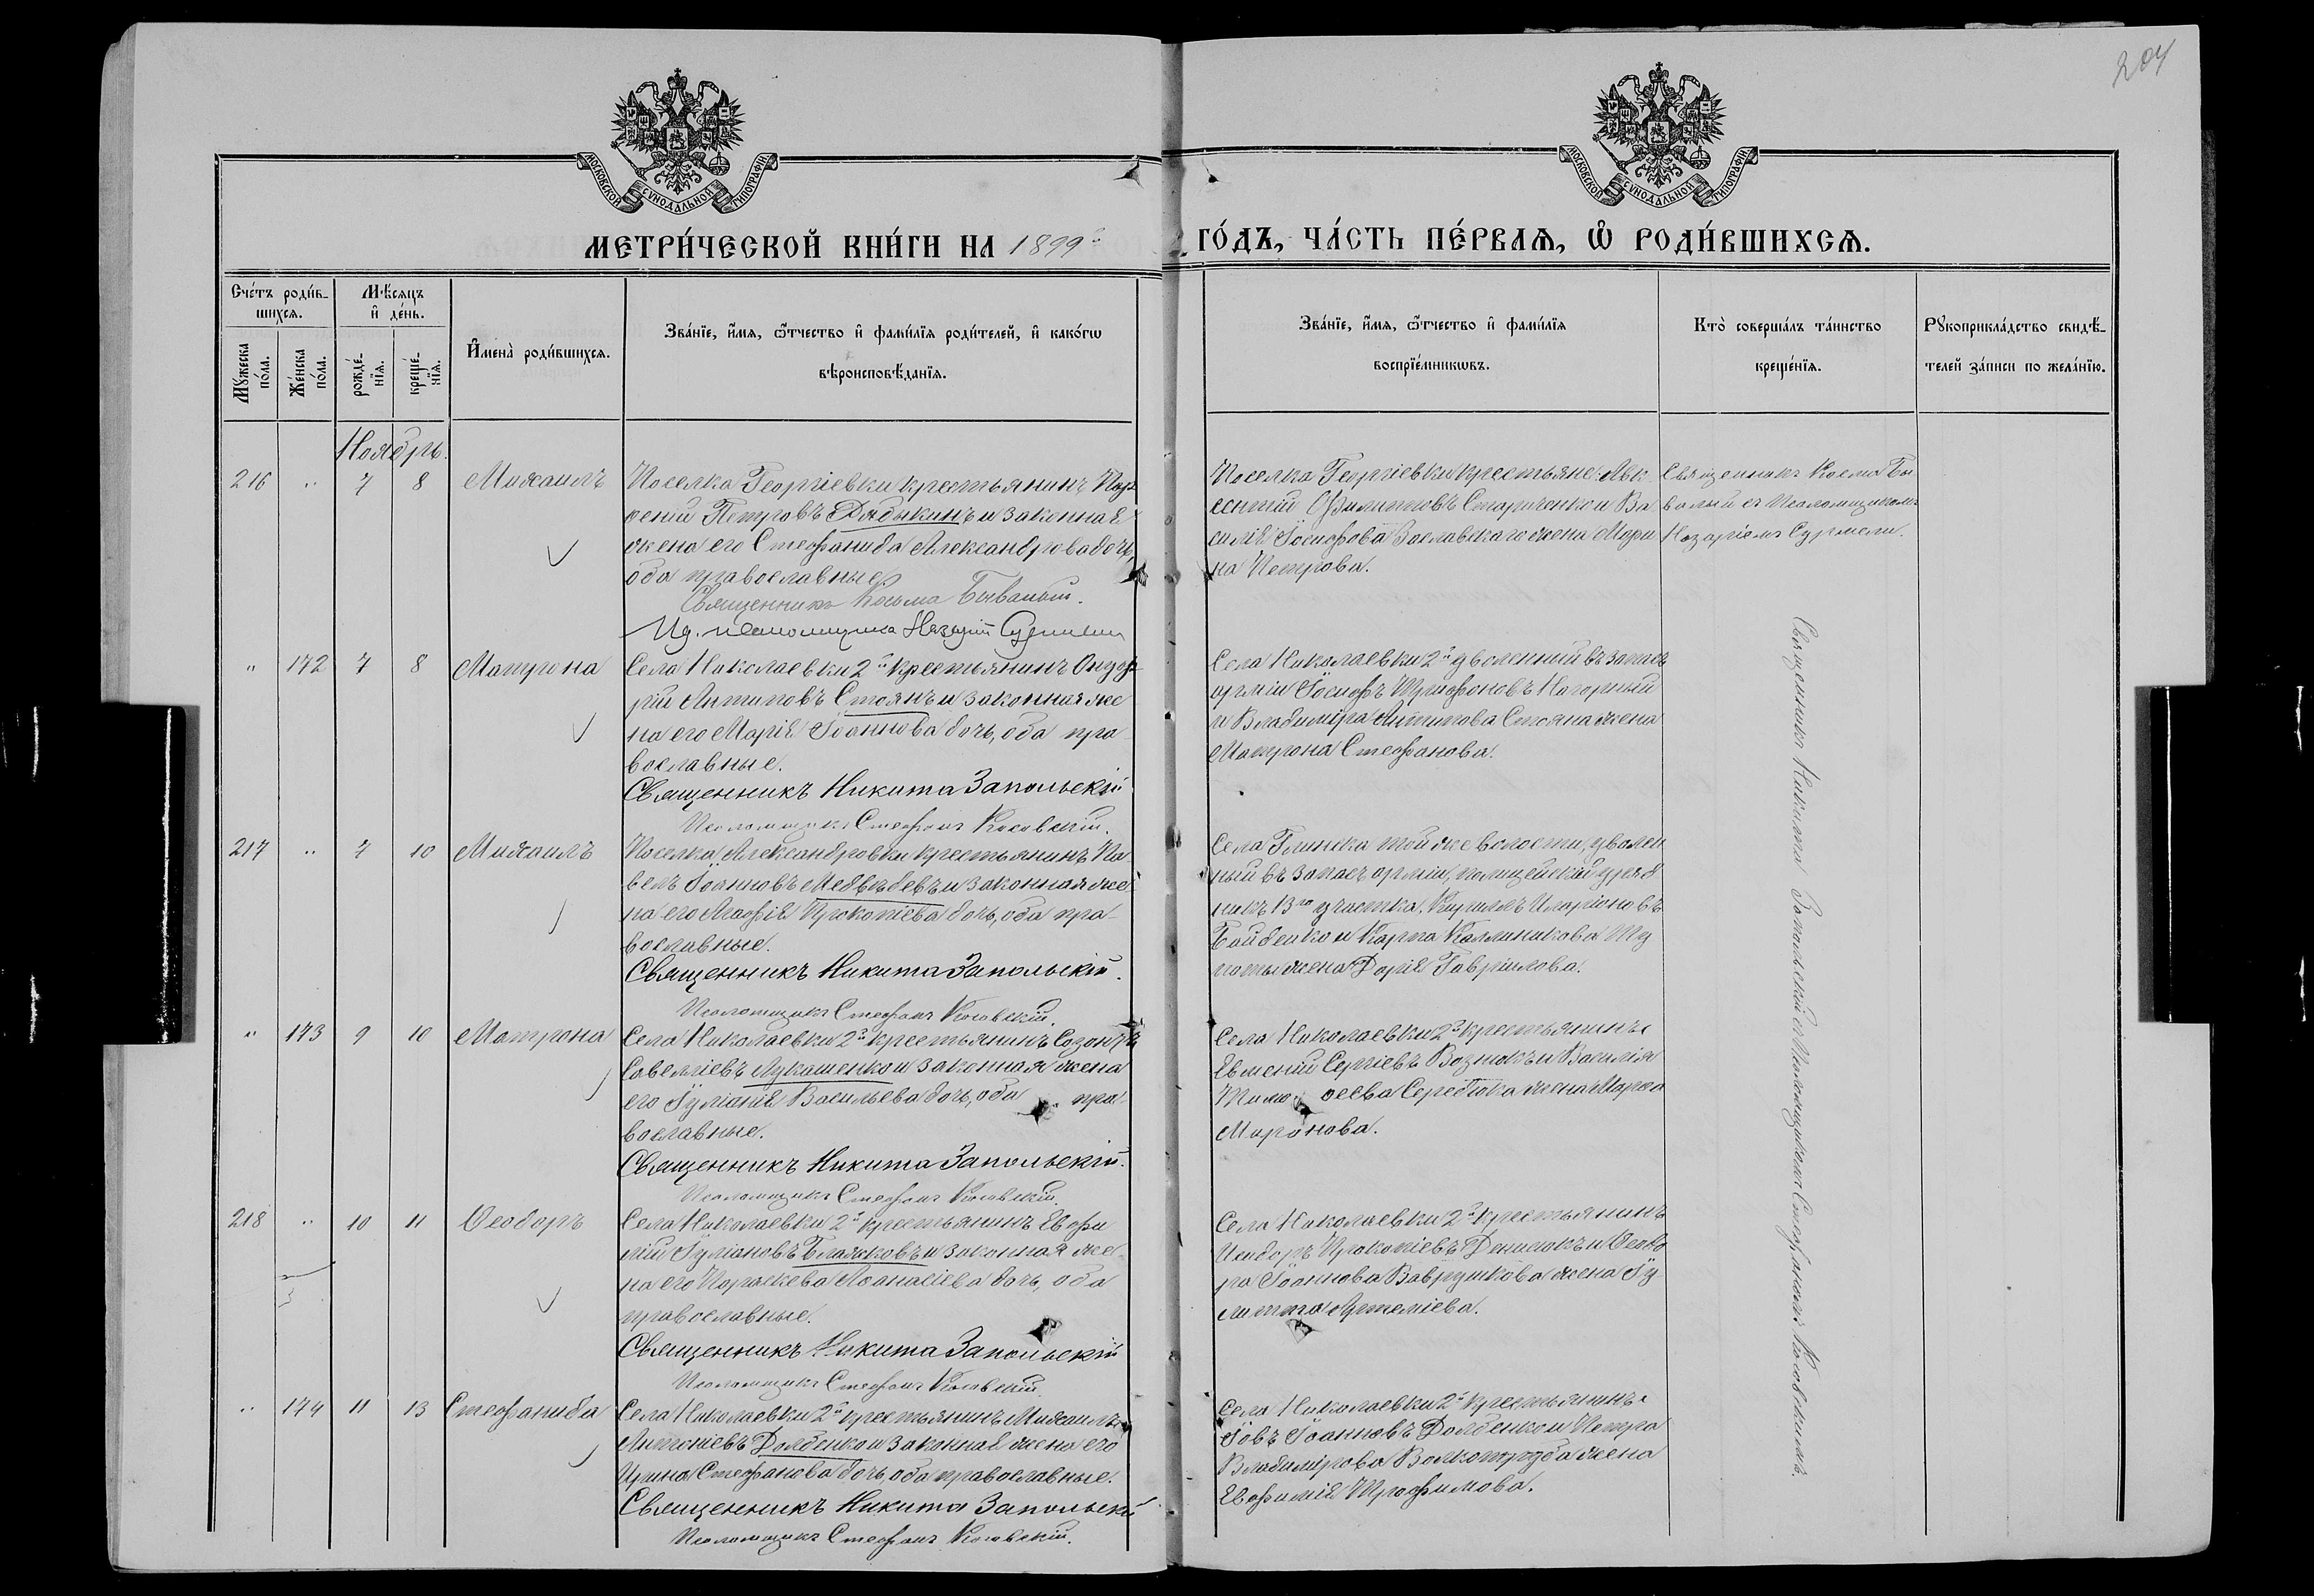 204
МОСКОВСКОЙ СѴНОДАЛЬНОЙ ТИПОГРАФІИ
МОСКОВСКОЙ СѴНОДАЛЬНОЙ ТИПОГРАФІИ
МЕТРИ́ЧЕСКОЙ КНИ́ГИ НА 1899 й
ГО́ДЪ, ЧА́СТЬ ПЕ́РВАѦ, Ѿ РОДИ́ВШИХСѦ.
Сче́тъ роди́в-
шихсѧ.
Мꙋжеска по́ла.
Же́нска по́ла.
Мѣ́сѧцъ
и҆ де́нь.
рожде́-
нїѧ.
креще́-
нїѧ.
И҆мена̀ роди́вшихсѧ.
Зва́нїе, и҆́мѧ, ѻ҆́тчество и҆ фами́лїѧ роди́телей, и҆ како́гѡ
вѣроисповѣ́данїѧ.
Зва́нїе, и҆́мѧ, ѻ҆́тчество и҆ фами́лїѧ
воспрїе́мникѡвъ.
Кто̀ соверша́лъ та́инство
креще́нїѧ.
Рꙋкоприкла́дство свидѣ́-
телей за́писи по жела́нїю.
Ноябрь.
216 " 7 8 Михаилъ
Поселка Георгіевки крестьянинъ Пор-
фений Петровъ Дядыкинъ и законная
жена его Стефанида Александрова дочь,
оба православные.
Священникъ Косьма Бываный.
И. д. псаломщика Назарій Сурмели
Поселка Георгіевки крестьяне: Авк-
сентій Филипповъ Старченко и Ва-
силія Іосифова Заславскаго жена Мари-
на Петрова.
Священникъ Косма Бы-
валый съ Псаломщикомъ
Назаріемъ Сурмели.
" 172 7 8 Матрона
Села Николаевки 2й крестьянинъ Онуф-
рій Антиповъ Стоянъ и законная же-
на его Марія Іоаннова дочь, оба пра-
вославные.
Священникъ Никита Запольскій
Псаломщикъ Стефанъ Косовскій.
Села Николаевки 2й уволенный въ запасъ
арміи Іосифъ Трифоновъ Нагорный
и Владиміра Антипова Стояна жена
Матрона Стефанова.
217 " 7 10 Михаилъ
Поселка Александровки крестьянинъ Па-
велъ Іоанновъ Медвѣдевъ и законная же-
на его Агафія Прокопіева дочь, оба пра-
вославные.
Священникъ Никита Запольскій.
Псаломщикъ Стефанъ Косовскій.
Села Глинска той же волости, уволен-
ный въ запасъ арміи, полицейскій уряд-
никъ 13го участка, Кириллъ Иларіоновъ
Бойденко и Карпа Каллиникова Ту-
поты жена Дарія Гавріилова.
" 173 9 10 Матрона
Села Николаевки 2й крестьянинъ Созонтъ
Савелліевъ Лукашенко и законная жена
его Іуліанія Васильева дочь, оба пра-
вославные.
Священникъ Никита Запольскій.
Псаломщикъ Стефанъ Косовскій.
Села Николаевки 2й крестьянинъ
Евмений Сергіевъ Вознюкъ и Василія
Тимофеева Середюка жена Марфа
Миронова.
218 " 10 11 Ѳеодоръ
Села Николаевки 2й крестьянинъ Евфи-
мій Іуліановъ Блажковъ и законная же-
на его Параскева Аѳанасіева дочь, оба
православные.
Священникъ Никита Запольскій
Псаломщикъ Стефанъ Косовскій.
Села Николаевки 2й крестьянинъ
Исидоръ Прокопіевъ Денисюкъ и Ѳеодо-
ра Іоаннова Ваврушкова жена Іу-
литта Артеміева.
" 174 11 13 Стефанида
Села Николаевки 2й крестьянинъ Михаилъ
Антоніевъ Долденко и законная жена его
Ирина Стефанова дочь, оба православные.
Священникъ Никита Запольскій
Псаломщикъ Стефанъ Косовскій.
Села Николаевки 2й крестьянинъ
Іовъ Іоанновъ Долденко и Петра
Владимірова Волкотруба жена
Евфимія Трофимова.
Священникъ Никита Запольскій съ Псаломщикомъ Стефаномъ Косовскимъ.